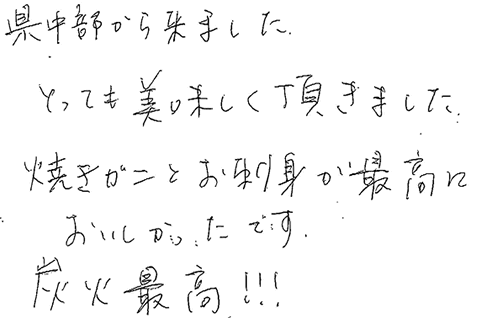 県中部から来ました.
とっても美味しく頂きました.
焼きガニとお刺身が最高に
おいしかったです.
炭火最高!!!